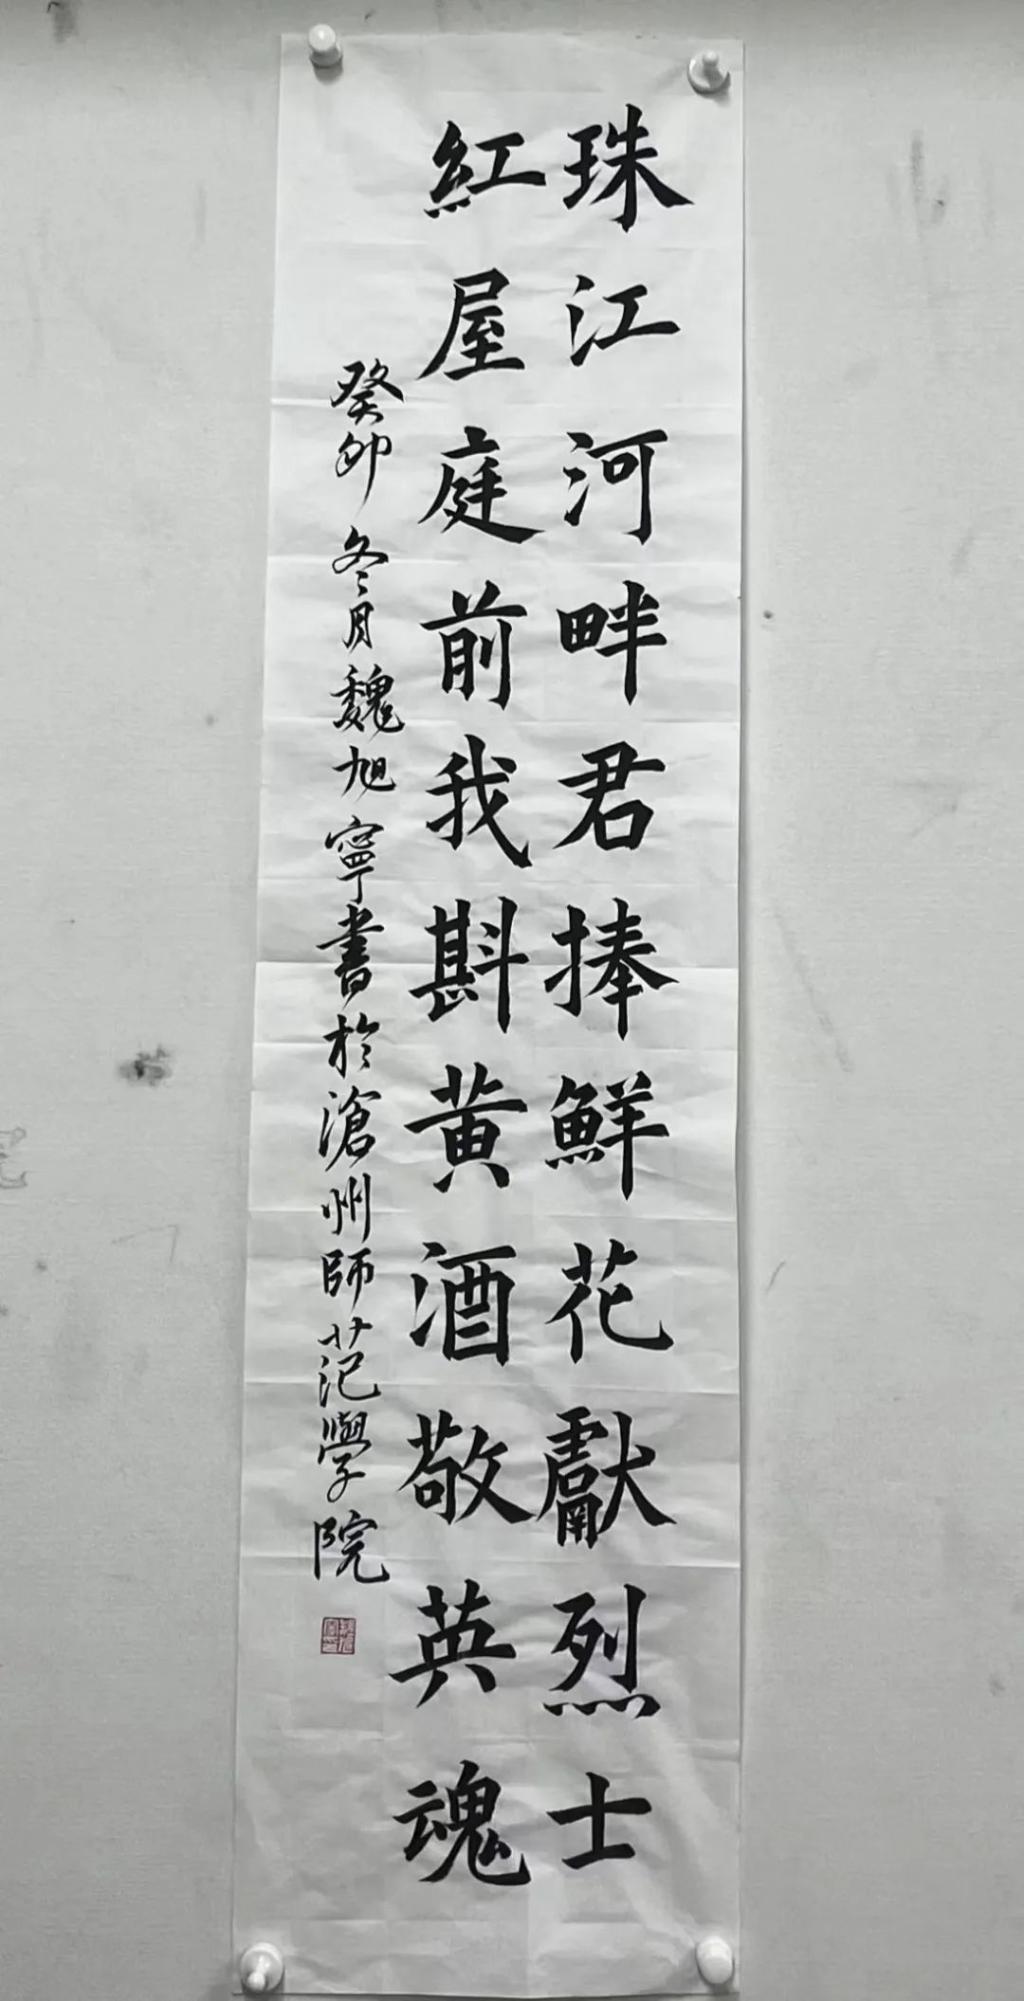 珠江河畔君捧鮮花獻烈士
紅屋庭前我斟黄酒敬英魂
癸卯冬月魏旭寧書於滄州師范學院